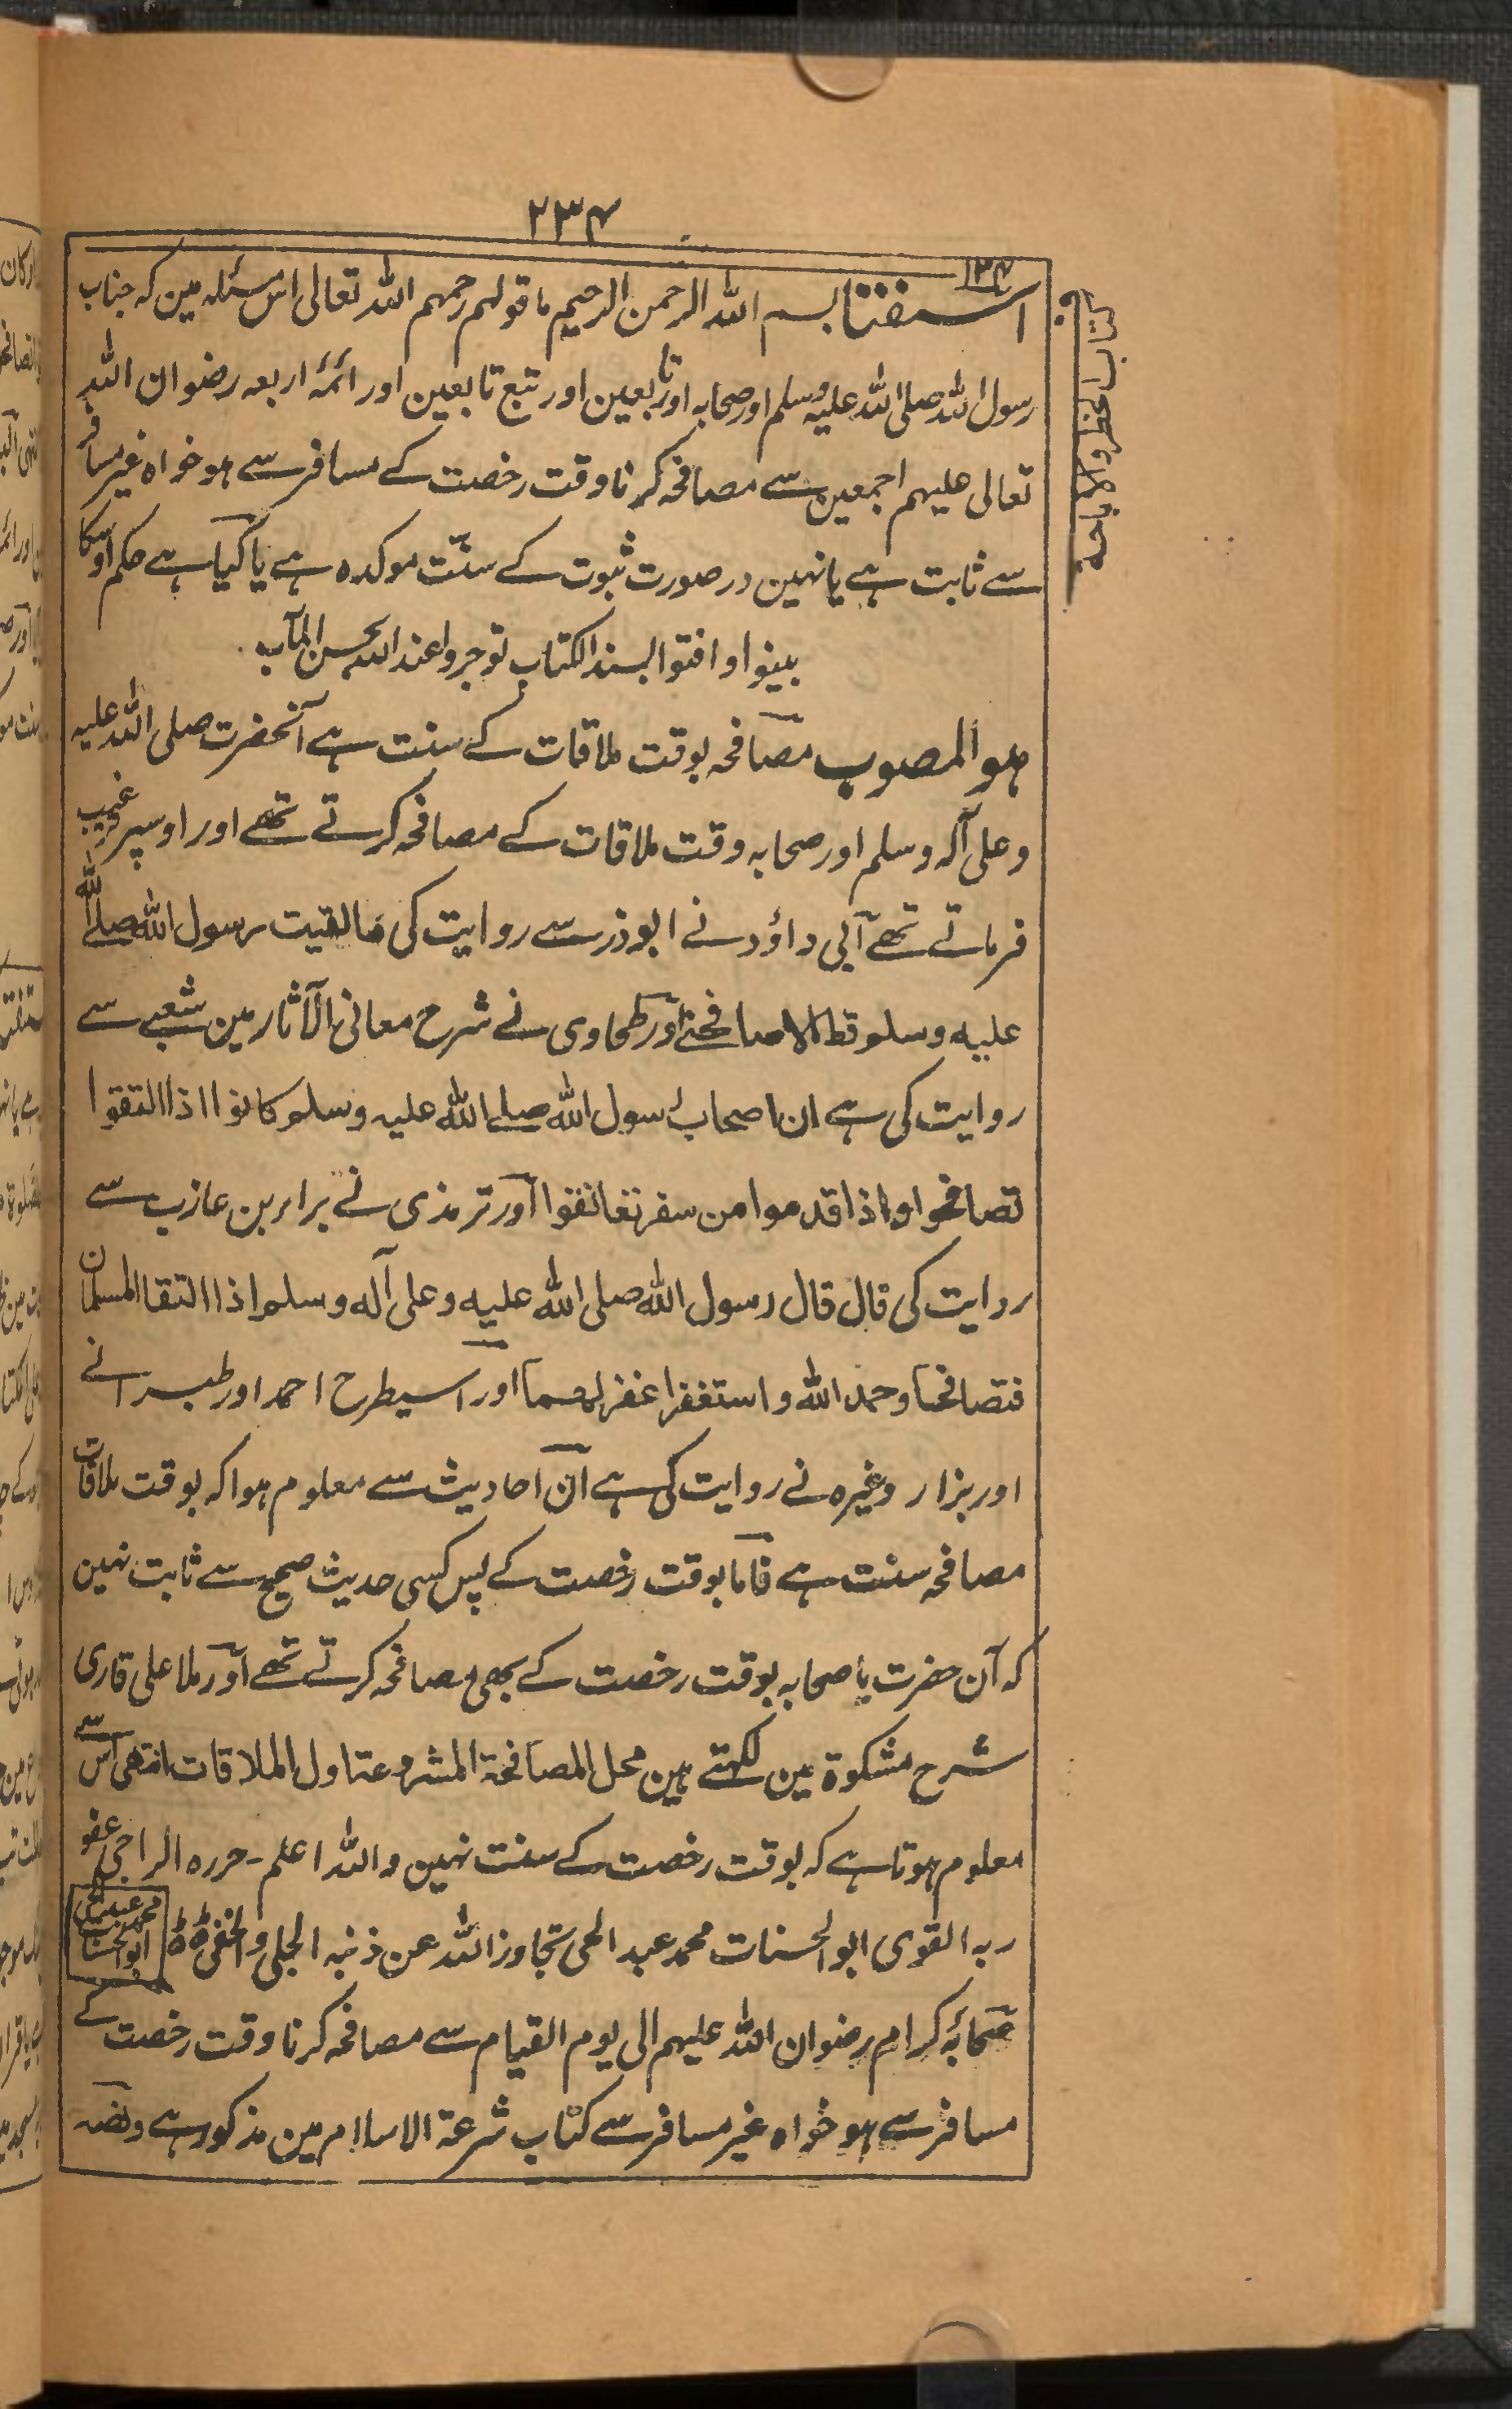 ۲۳۴
کتاب الحظر والاباحة
۱۳۴
استفتا بسم اللہ الرحمن الرحیم ما قولہم رحمہم اللہ تعالی اس مسئلہ مین کہ جناب
رسول اللہ صلی اللہ علیہ وسلم اور صحابہ اور تابعین اور تبع تابعین اور ائمۂ اربعہ رضوان اللہ
تعالی علیہم اجمعین سے مصافحہ کرنا وقت رخصت کے مسافر سے ہو خواہ غیر مسافر
سے ثابت ہے یا نہین در صورت ثبوت کے سنّت موکدہ ہے یا کیا ہے حکم اوسکا
بینوا وافتوا بسند الکتاب توجروا عند اللہ بحسن المآب
ہو المصوب مصافحہ بوقت ملاقات کے سنت ہے آنحضرت صلی اللہ علیہ
وعلی آلہ وسلم اور صحابہ وقت ملاقات کے مصافحہ کرتے تھے اور اوسپر ترغیب
فرماتے تھے ابی داؤد نے ابوذر سے روایت کی مالقیت رسول اللہ صلے اللہ
علیہ وسلم قط الا صافحنے اور طحاوی نے شرح معانی الآثار مین شعبے سے
روایت کی ہے ان اصحاب رسول اللہ صلے اللہ علیہ وسلم کانوا اذا التقوا
تصافحوا واذا قدموا من سفر تعانقوا اور ترمذی نے براء بن عازب سے
روایت کی قال قال رسول اللہ صلی اللہ علیہ وعلی آلہ وسلم اذا التقا المسلمان
فتصافحا وحمد اللہ واستغفرا غفر لہما اور اسیطرح احمد اور طبرانے
اور بزار وغیرہ نے روایت کی ہے ان احادیث سے معلوم ہوا کہ بوقت ملاقات
مصافحہ سنت ہے فاما بوقت رخصت کے پس کسی حدیث صحیح سے ثابت نہین
کہ آن حضرت یا صحابہ بوقت رخصت کے بھی مصافحہ کرتے تھے اور ملا علی قاری
شرح مشکوۃ مین لکھتے ہین محل المصافحة المشروعة اول الملاقات انتھی اس سے
معلوم ہوتا ہے کہ بوقت رخصت کے سنت نہین واللہ اعلم۔ حررہ الراجی عفو
ربہ القوی ابو الحسنات محمد عبد الحی تجاوز اللہ عن ذنبہ الجلی والخفی
محمد عبد الحی ابو الحسنات
صحابۂ کرام رضوان اللہ علیہم الی یوم القیام سے مصافحہ کرنا وقت رخصت کے
مسافر سے ہو خواہ غیر مسافر سے کتاب شرعة الاسلام مین مذکور ہے ونصہ